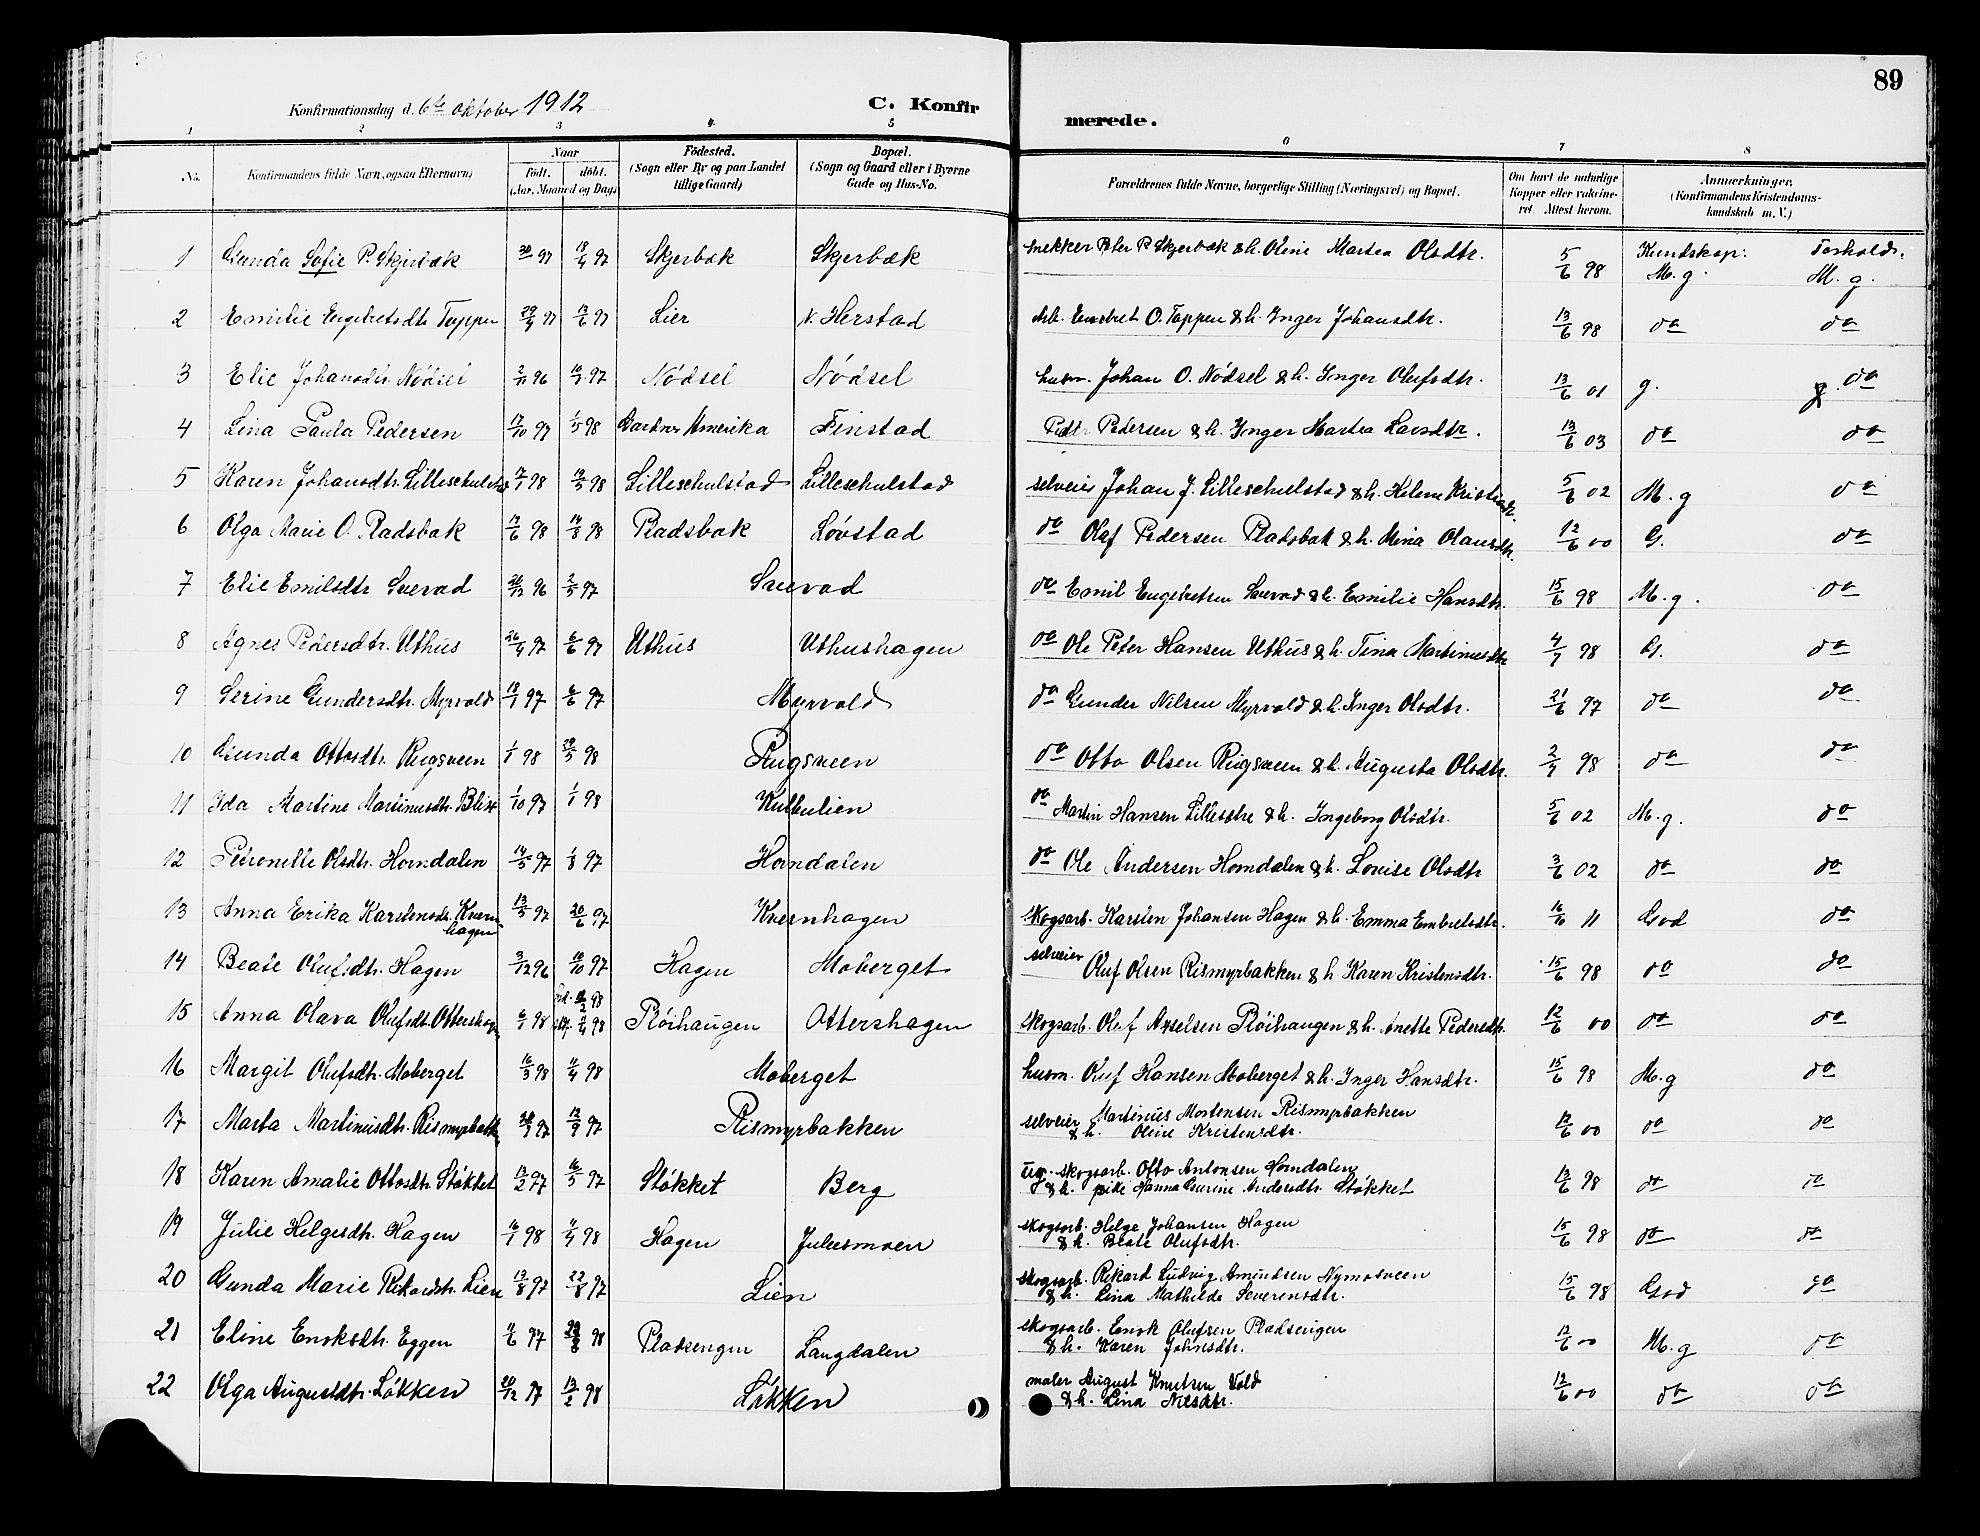 89
Konfirmationsdag d. 6te oktober 1912 C. Konfirmerede.
1 2 3 4 5 6 7 8
No. Konfirmandens fulde Navn, ogsaa Efternavn) Naar Födt. döbt. (Aar, Maaned og Dag) Födested. (Sogn eller By og paa Landet tillige Gaard) Bopæl. (Sogn og Gaard eller i Byerne Gade og Hus-No. Forældrenes fulde Navne, borgerlige Stilling (Næringsvei) og Bopæl. Om havt de naturlige Kopper eller vaccineret. Attest herom. Anmærkninger. (Konfirmandens Kristendomskundskab m. V.)
1 Gunda Sofie P. Skjerbæk 97 18/4 97 Skjerbæk Skjerbæk snekker Peter P Skjerbæk & h. Oline Martea Olsdtr. 5/6 98 Kundskap: M. g. Forhold: M. g.
2 Emilie Engebretsdtr Toppen 29/4 97 13/6 97 Lier N. Herstad Arb. Embret O. Toppen & h. Inger Johansdtr. 13/6 98 do do
3 Elie Johansdtr. Nödsel 2/11 96 97 Nödsel Nödsel husm. Johan O. Nödsel & h. Inger Olufsdtr. 13/6 01 g. do
4 Lina Paula Pedersen 17/10 97 1/5 98 Gardner Amerika Finstad Peder Pedersen & h. Inger Martea Larsdtr. 13/6 03 do do
5 Karen Johansdtr. Lilleschulstad 17/1 98 98 Lilleschulstad Lilleschulstad selveier Johan J. Lilleschulstad & h. Helene Kristiansdtr. 5/6 02 M. g do
6 Olga Marie O. Pladsbak 98 14/8 98 Pladsbak Lövstad do Olaf Pedersen Pladsbak & h. Mina Olausdtr. 12/6 00 G. do
7 Elie Emilsdtr Saevad 96 2/5 97 Saevad do Emil Engebretsen Saevad & h. Emilie Hansdtr. 15/6 98 M. g. do
8 Agnes Pedersdtr. Uthus 26/4 97 6/6 97 Uthus Uthushagen do Ole Peter Hansen Uthus & h. Tina Martinusdtr 4/7 98 G. do
9 Serine Gundersdtr. Myrvold 18/1 97 6/6 97 Myrvold do Gunder Nilsen Myrvold & h. Inger Olsdtr. 21/6 97 do do
10 Gunda Ottosdtr. Rugsveen 1/1 98 29/5 98 Rugsveen do Otto Olsen Rugsveen & h. Augusta Olsdtr. 2/7 98 do do
11 Ida Martine Martinusdtr. 1/10 97 1/1 98 Kulbulien do Martin Hansen & h. Ingeborg Olsdtr. 5/6 02 M. g. do
12 Petronelle Olsdtr. Horndalen 14/5 97 1/8 97 Horndalen do Ole Andersen Horndalen & h. Lovise Olsdtr 3/6 02 do do
13 Anna Erika Karstensdtr. Kvernhagen 13/5 97 20/6 97 Kvernhagen skogsarb. Karsten Johansen Hagen & h. Emma Embretsdtr. 16/10 11 God do
14 Beate Olufsdtr. Hagen 3/12 96 10/10 97 Hagen Moberget selveier Oluf Olsen Rismyrbakken & h Karen Kristensdtr. 15/6 98 do do
15 Anna Olava Olufsdtr. Ottershagen 6/1 98 98 98 Plöihaugen Ottershagen skogsarb. Oluf Axelsen Plöihaugen & h. Anette Pedersdtr. 12/6 00 do do
16 Margit Olufsdtr. Moberget 16/3 98 11/4 98 Moberget husm. Oluf Hansen Moberget & h. Inger Hansdtr. 15/6 98 M. g do
17 Marta Martinusdtr. Rismyrbakken 97 97 Rismyrbakken selveier Martinus Mortensen Rismyrbakken
& h. Oline Kristensdtr. 12/6 00 do do
18 Karen Amalie Ottosdtr. Stökket 13/2 97 16/5 97 Stökket Berg ug. skogsarb. Otto Antonsen Horndalen
& h. pike Hanna Gurine Andersdtr Stökket 13/6 98 do do
19 Julie Helgesdtr. Hagen 98 11/4 98 Hagen Juliesmoen skogsarb. Helge Johansen Hagen
& h. Beate Olufsdtr. 15/6 98 do do
20 Gunda Marie Rikardstr. Lien 13/8 97 22/8 97 Lien skogsarb. Rikard Ludvig Amundsen Nymosveen
& h. Lina Mathilde Severensdtr. 15/6 98 God do
21 Eline Enoksdtr. Eggen 11/6 97 98 Pladsengen Langdalen skogsarb. Enok Olufsen Pladsengen
& h. Karen Johnsdtr. 12/6 00 M. g do
22 Olga Augustdtr. Lökken 20/12 97 13/2 98 Lökken maler August Knutsen Vold
& h. Lina Nilsdtr. 12/6 00 do do